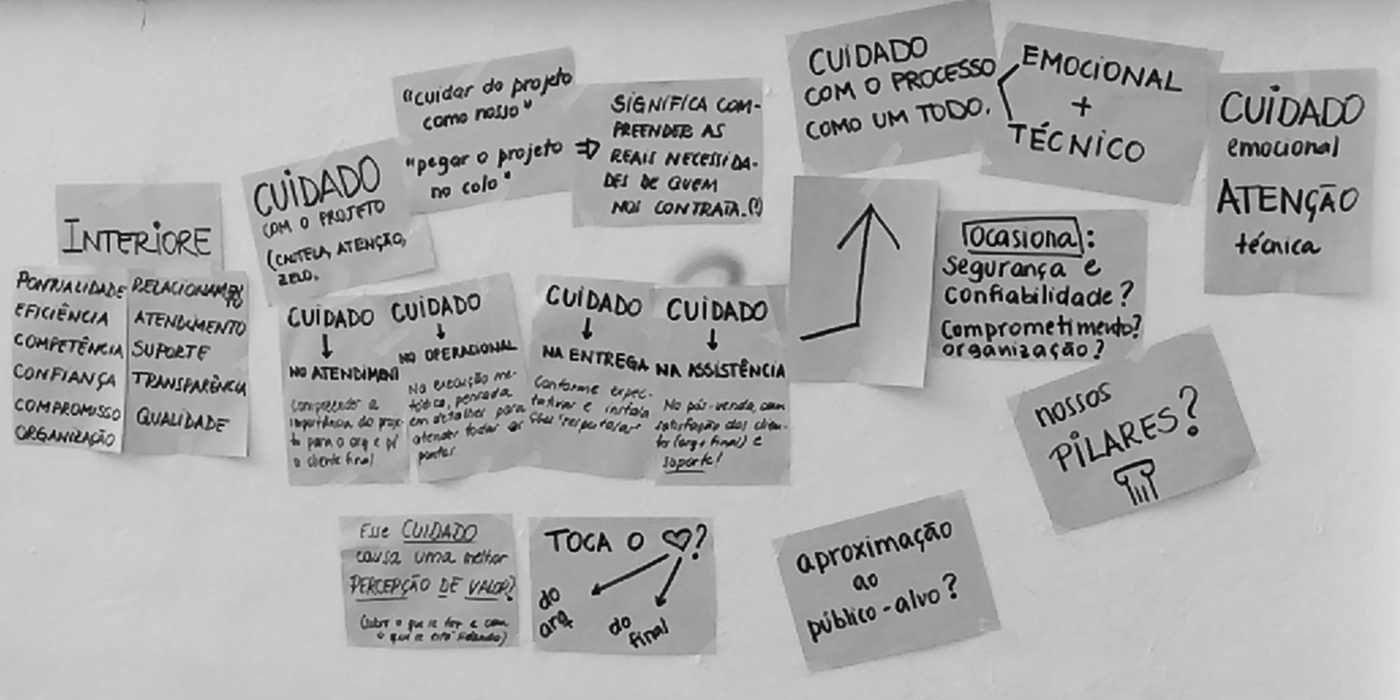 INTERIORE
PONTUALIDADE
EFICIÊNCIA
COMPETÊNCIA
CONFIANÇA
COMPROMISSO
ORGANIZAÇÃO
RELACIONAMENTO
ATENDIMENTO
SUPORTE
TRANSPARÊNCIA
QUALIDADE
CUIDADO
COM O PROJETO
(CAUTELA, ATENÇÃO,
ZELO.
"cuidar do projeto
como nosso"
"pegar o projeto
no colo"
SIGNIFICA COM-
PREENDER AS
REAIS NECESSIDA-
DES DE QUEM
NOS CONTRATA.(!)
CUIDADO
NO ATENDIMEN
Compreender a
importância do proje-
to para o arq e p/
o cliente final
CUIDADO
NO OPERACIONAL
Na execução me-
tódica, pensada
em detalhes para
atender todas as
pontas.
CUIDADO
NA ENTREGA
Conforme expec-
tativas e
CUIDADO
NA ASSISTÊNCIA
No pós-venda, com
satisfação dos clien-
tes (arq + final) e
suporte!
CUIDADO
COM O PROCESSO
COMO UM TODO.
EMOCIONAL
+
TÉCNICO
CUIDADO
emocional
ATENÇÃO
técnica
Ocasiona:
Segurança e
Confiabilidade?
Comprometimento?
organização?
nossos
PILARES?
Esse CUIDADO
causa uma melhor
PERCEPÇÃO DE VALOR?
(sobre o que se faz e com
o que se está lidando)
TOCA O ♡?
do
arq
do
final
aproximação
ao
público-alvo?